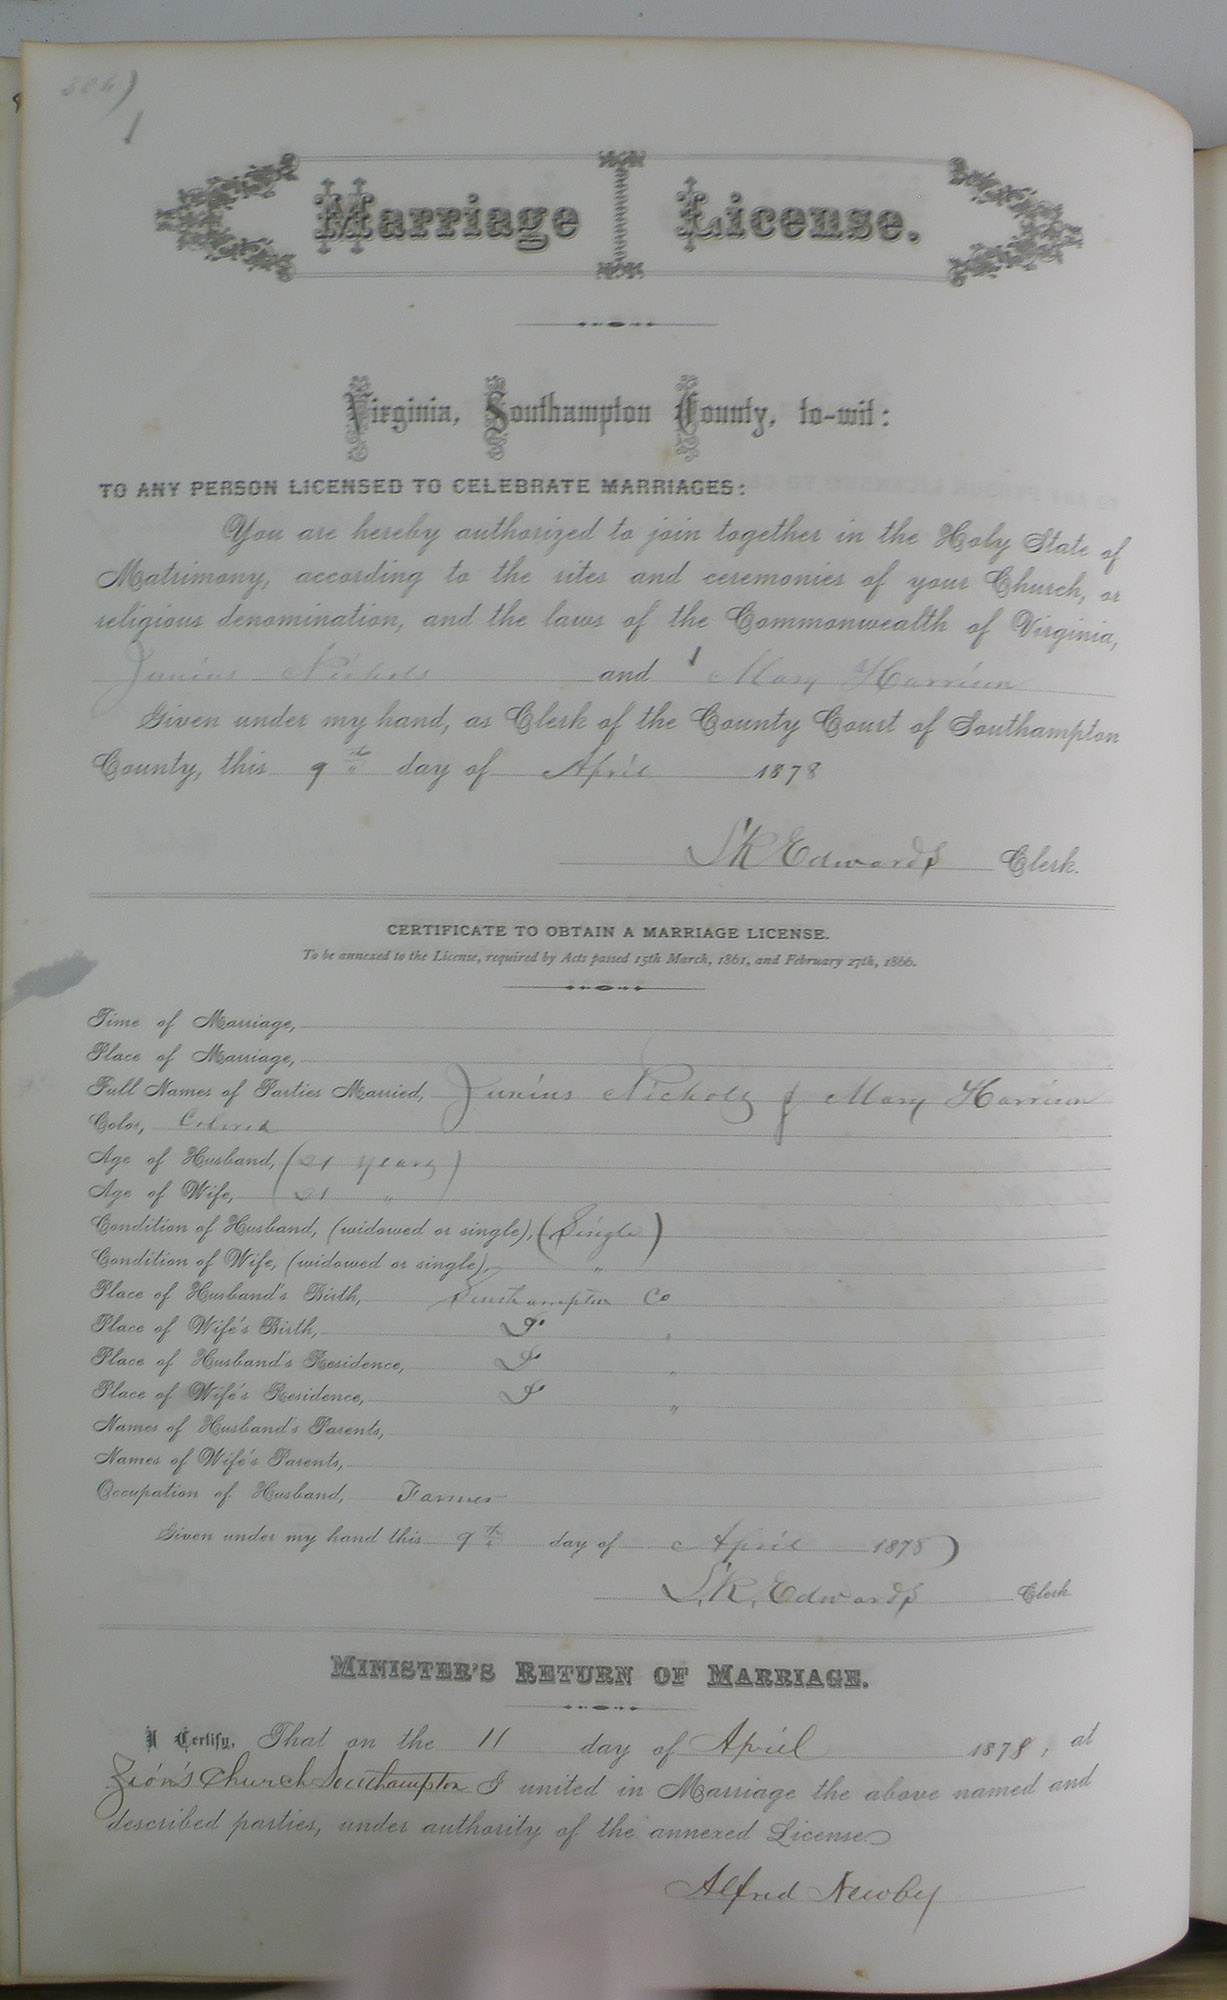 Marriage License.
Virginia, Southampton County, to-wit:
TO ANY PERSON LICENSED TO CELEBRATE MARRIAGES:
You are hereby authorized to join together in the Holy State of
Matrimony, according to the rites and ceremonies of your Church, or
religious denomination, and the laws of the Commonwealth of Virginia,
Junius Nichols and Mary Harrison
Given under my hand, as Clerk of the County Court of Southampton
County, this 9th day of April 1878
S R Edwards Clerk.
CERTIFICATE TO OBTAIN A MARRIAGE LICENSE.
To be annexed to the License, required by Acts passed 15th March, 1861, and February 27th, 1866.
Time of Marriage,
Place of Marriage,
Full Names of Parties Married, Junius Nichols & Mary Harrison
Color, Colored
Age of Husband, (21 years)
Age of Wife, 21 "
Condition of Husband, (widowed or single), (Single)
Condition of Wife, (widowed or single), "
Place of Husband's Birth, Southampton Co
Place of Wife's Birth, Do "
Place of Husband's Residence, Do "
Place of Wife's Residence, Do "
Names of Husband's Parents,
Names of Wife's Parents,
Occupation of Husband, Farmer
Given under my hand this 9th day of April 1878)
S. R. Edwards Clerk
MINISTER'S RETURN OF MARRIAGE.
I Certify, That on the 11 day of April 1878, at
Zion's Church Southampton I united in Marriage the above named and
described parties, under authority of the annexed License.
Alfred Newby